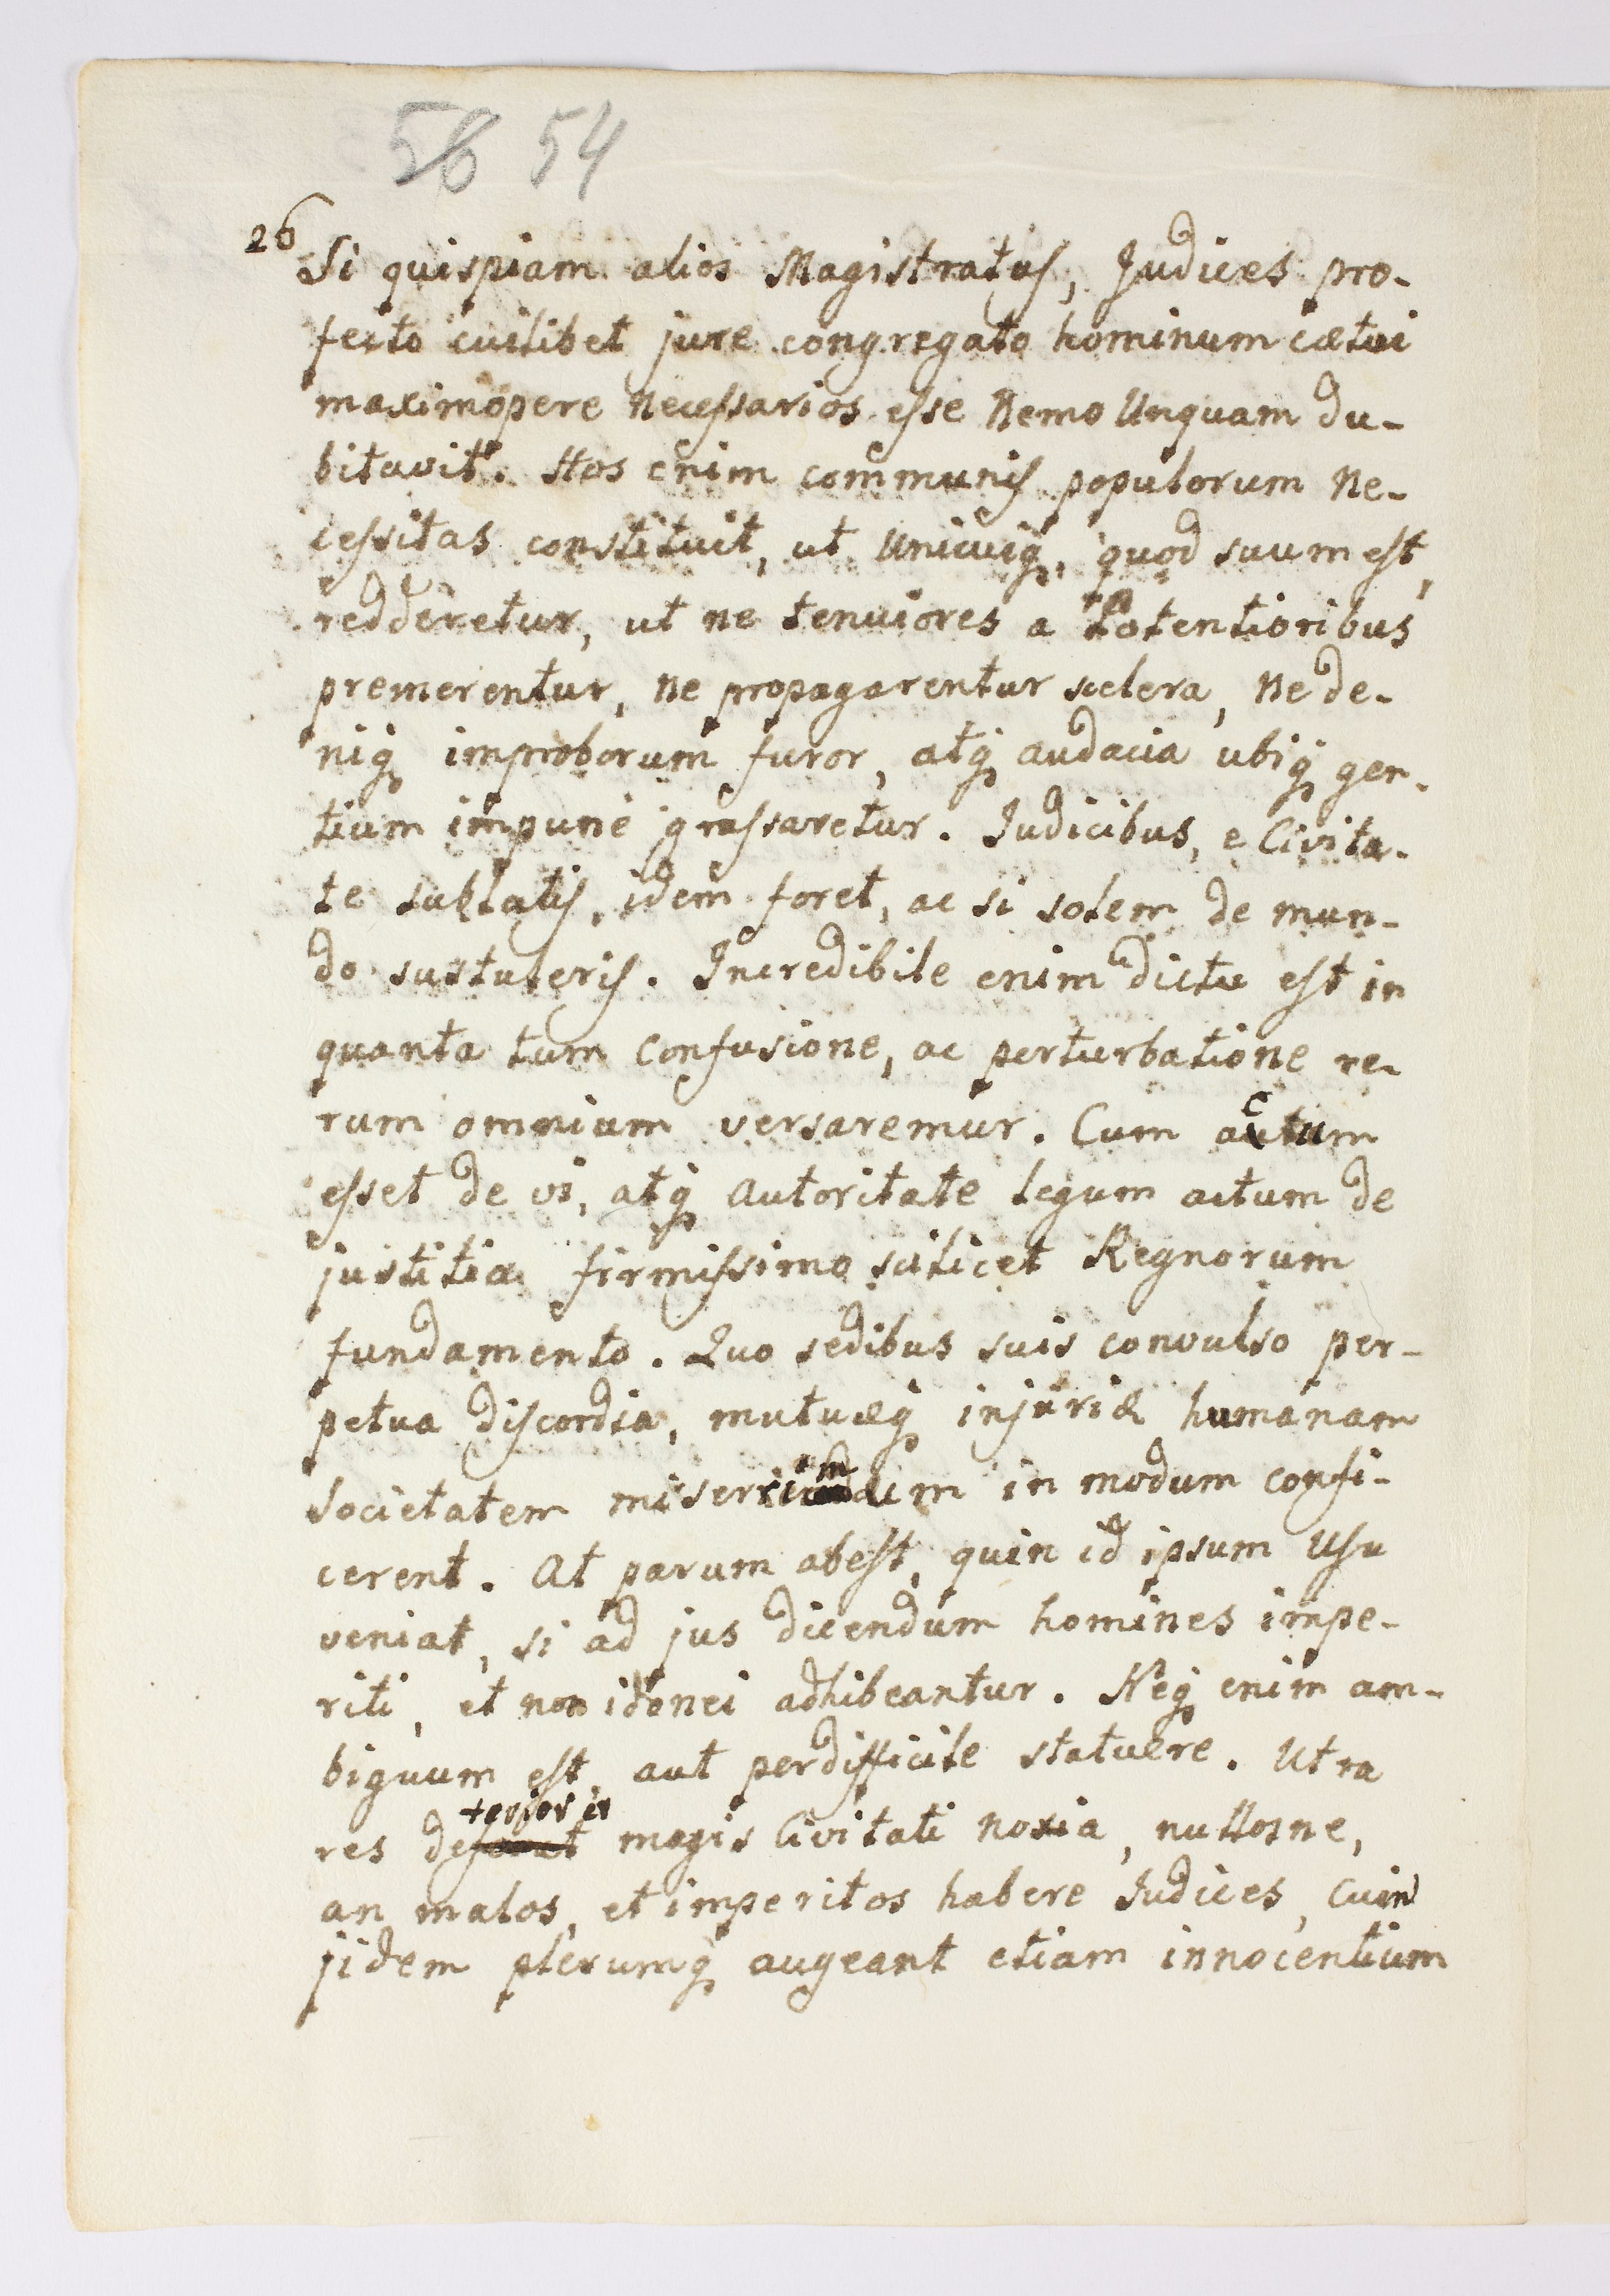 56 54
26
Si quispiam alios Magistratus, Judices pro-
fecto cuilibet jure congregato hominum cætui
maximopere necessarios esse Nemo Unquam du-
bitavit. Hos enim communis populorum ne-
cessitas constituit, ut Unicuiq, quod suum est,
redderetur, ut ne tenuiores a Potentioribus
premerentur, ne propagarentur scelera, ne de-
niq improborum furor, atq audacia ubiq gen-
tium impune grassaretur. Judicibus, e Civita-
te sublatis, idem foret, ac si solem de mun-
do sustuleris. Incredibile enim dictu est in
quanta tum confusione, ac perturbatione re-
rum omnium versaremur. Cum actum
esset de vi, atq autoritate legum actum de
justitia firmissimo scilicet Regnorum
fundamento. Quo sedibus suis convulso per-
petua discordia, mutuæq injuriæ humanam
societatem miserrimum in modum confi-
cerent. At parum abest, quin id ipsum Usu
veniat, si ad jus dicendum homines impe-
riti, et non idonei adhibeantur. Neq enim am-
biguum est, aut perdifficile statuere. Utra
res magis Civitati noxia, nullosne,
an malos, et imperitos habere Judices, Cum
jidem plerumq augeant etiam innocentium